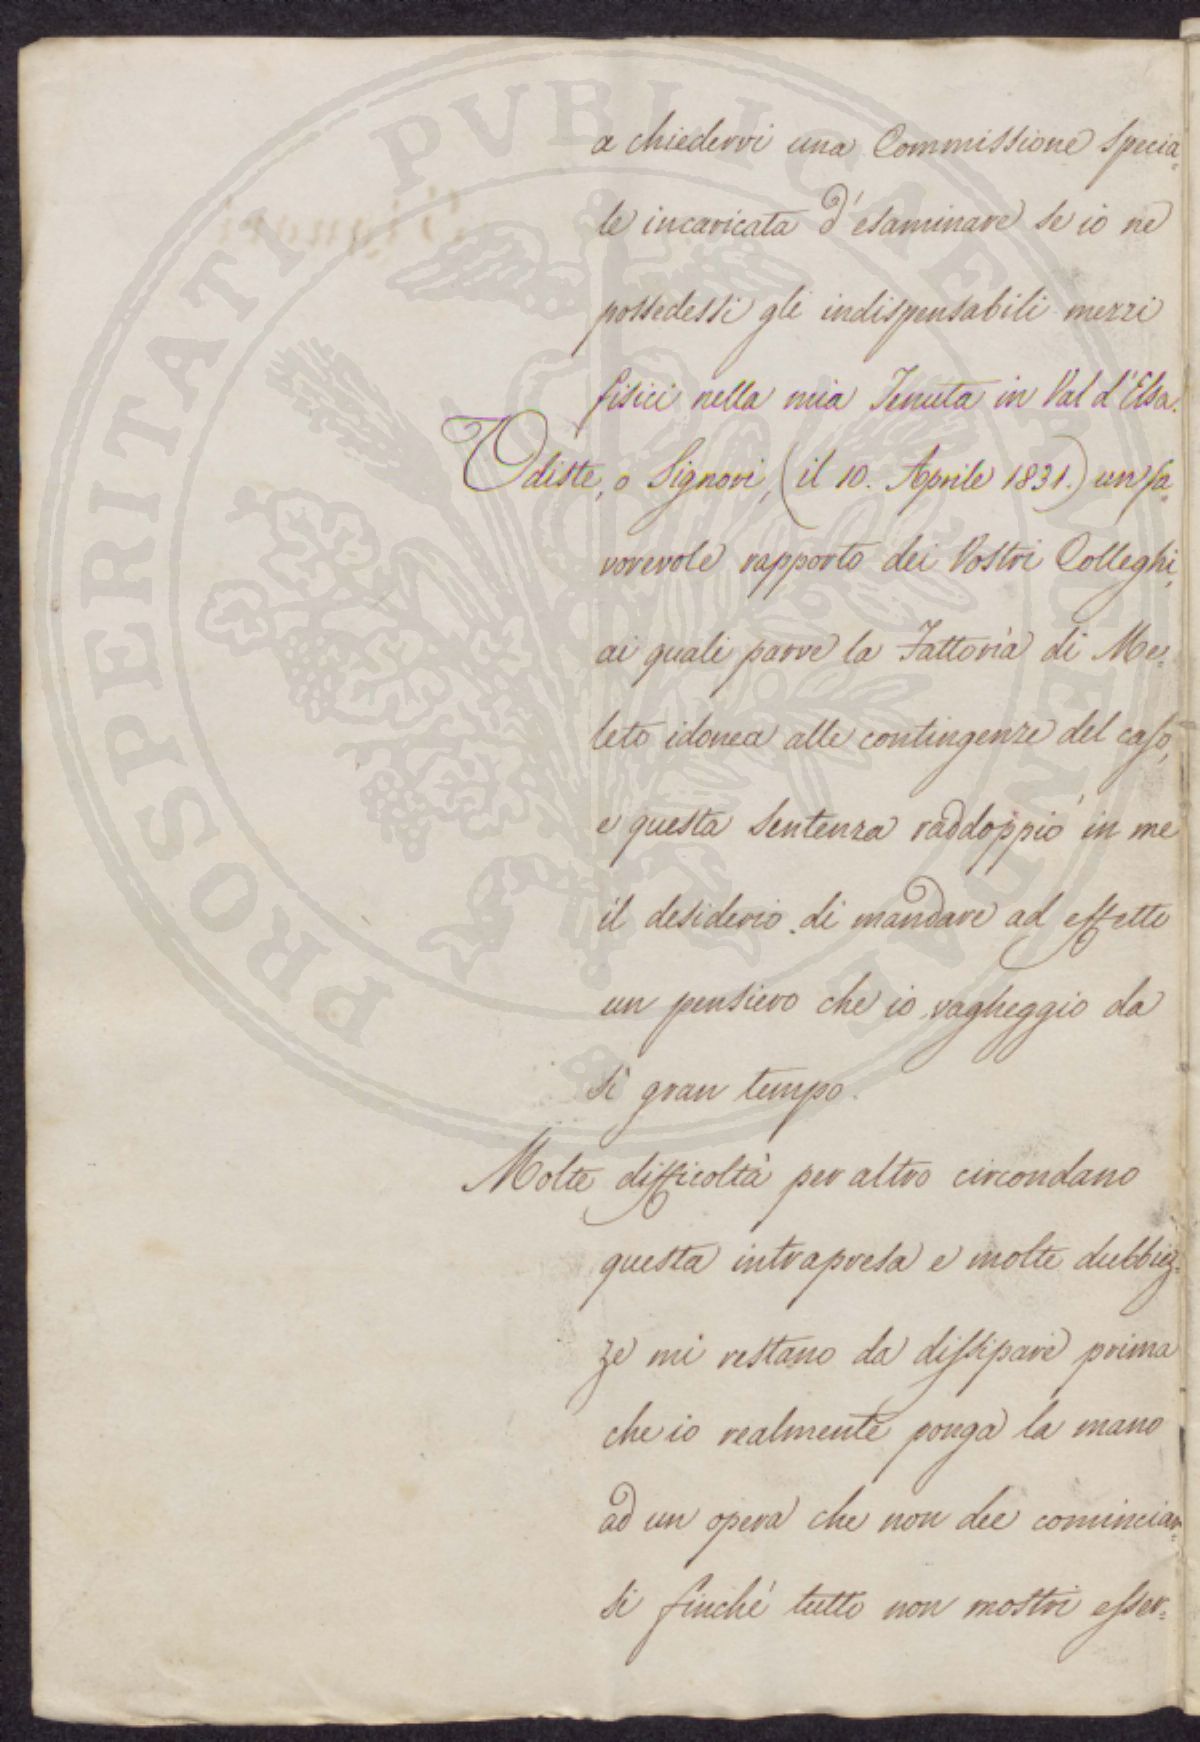 a chiedervi una Commissione specia=
le incaricata d'esaminare se io ne
possedessi gli indispensabili mezzi
fisici nella mia Tenuta in Val d'Elsa.
Udiste, o Signori, (il 10. Aprile 1831.) un fa=
vorevole rapporto dei Vostri Colleghi,
ai quali parve la Fattoria di Me=
leto idonea alle contingenze del caso,
e questa sentenza raddoppiò in me
il desiderio di mandare ad effetto
un pensiero che io vagheggio da
sì gran tempo.
Molte difficoltà per altro circondano
questa intrapresa e molte dubbiez=
ze mi restano da dissipare prima
che io realmente ponga la mano
ad un opera che non dee cominciar=
si finché tutto non mostri esser=
PROSPERITATI PVBLICAE AVGENDAE